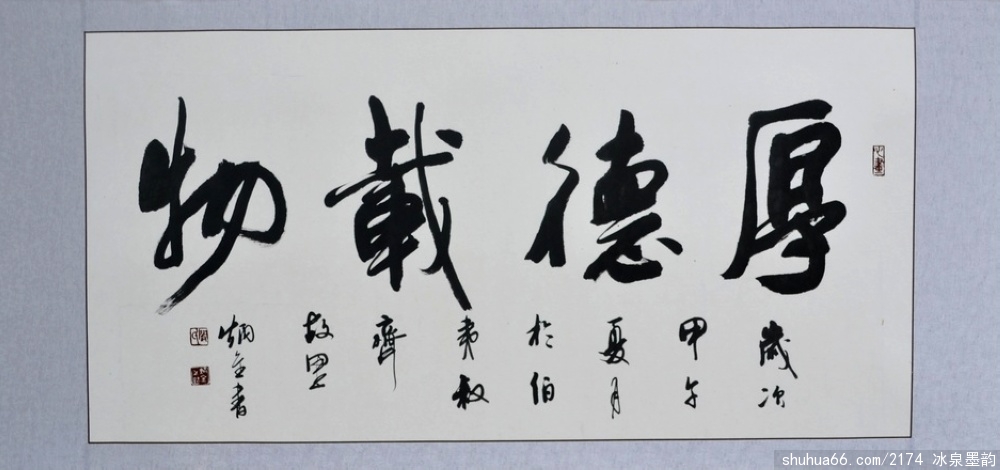 厚德載物
歲次
甲午
夏月
於伯
夷叔
齊
故里
炳金書
shuhua66.com/2174 冰泉墨韵